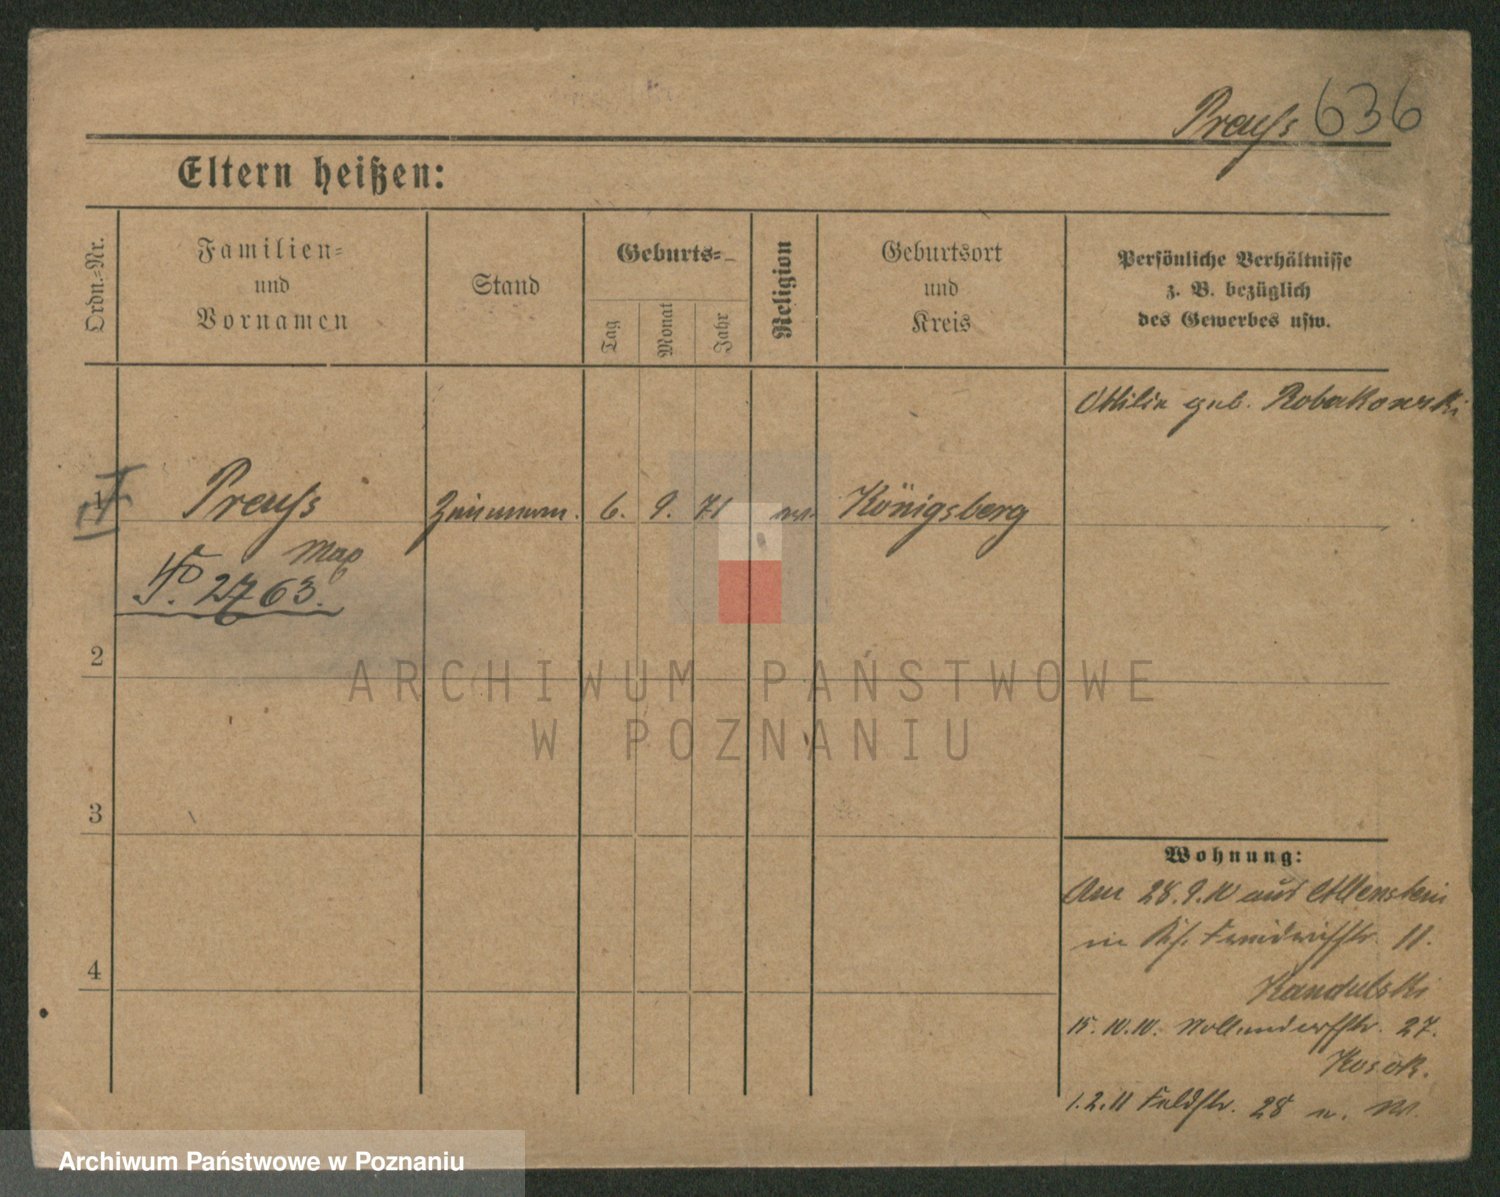 Preuss 636
Eltern heißen:
Ordn.-Nr.
Familien-
und
Vornamen
Stand
Geburts-
Tag
Monat
Jahr
Religion
Geburtsort
und
Kreis
Persönliche Verhältnisse
z. B. bezüglich
des Gewerbes usw.
Ottilie geb. Robakowski
1 Preuss 6. 9. 71 Königsberg
Max
2763.
2
3
4
Wohnung:
Am 28.9.10 aus Allenstein
in 11.
Kandulski
15.10.10. Nollendorffstr. 27.
Kosok.
1.2.11 Feldstr. 28
ARCHIWUM PAŃSTWOWE
W POZNANIU
Archiwum Państwowe w Poznaniu